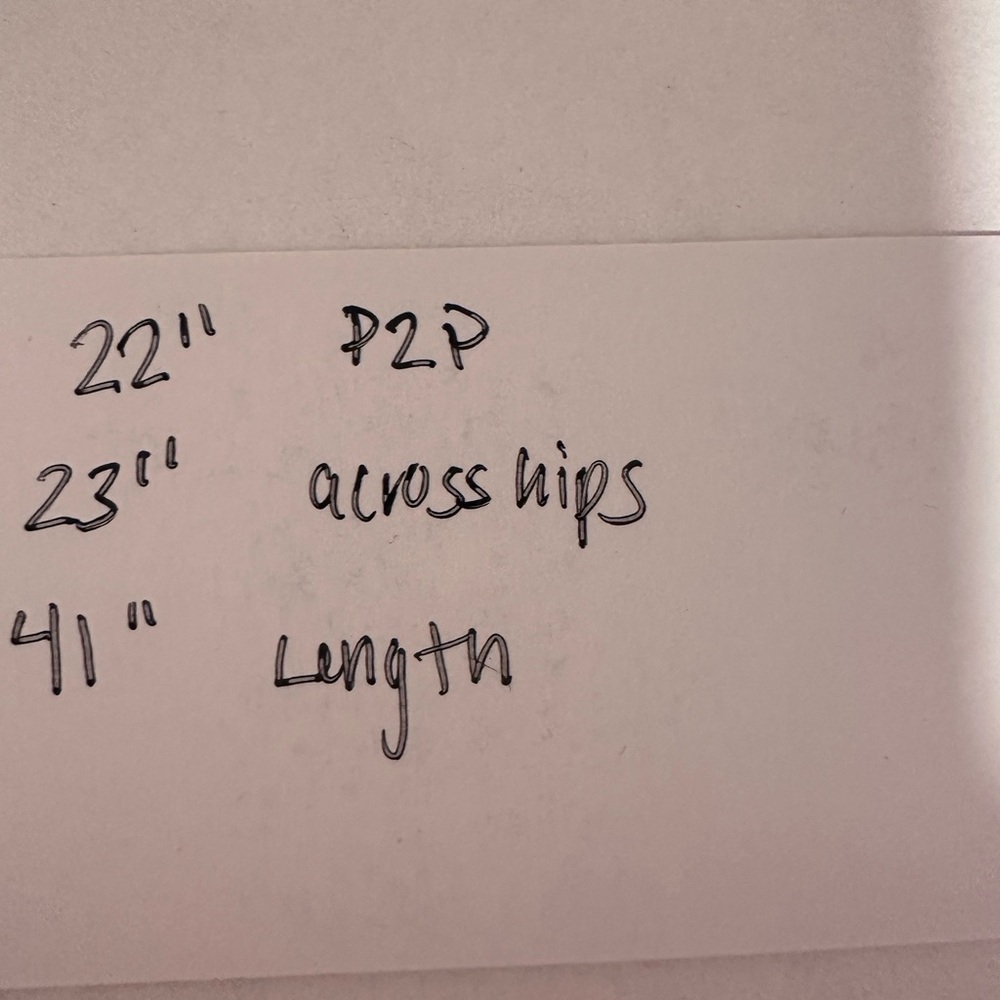 22" P2P
23" across hips
41" Length